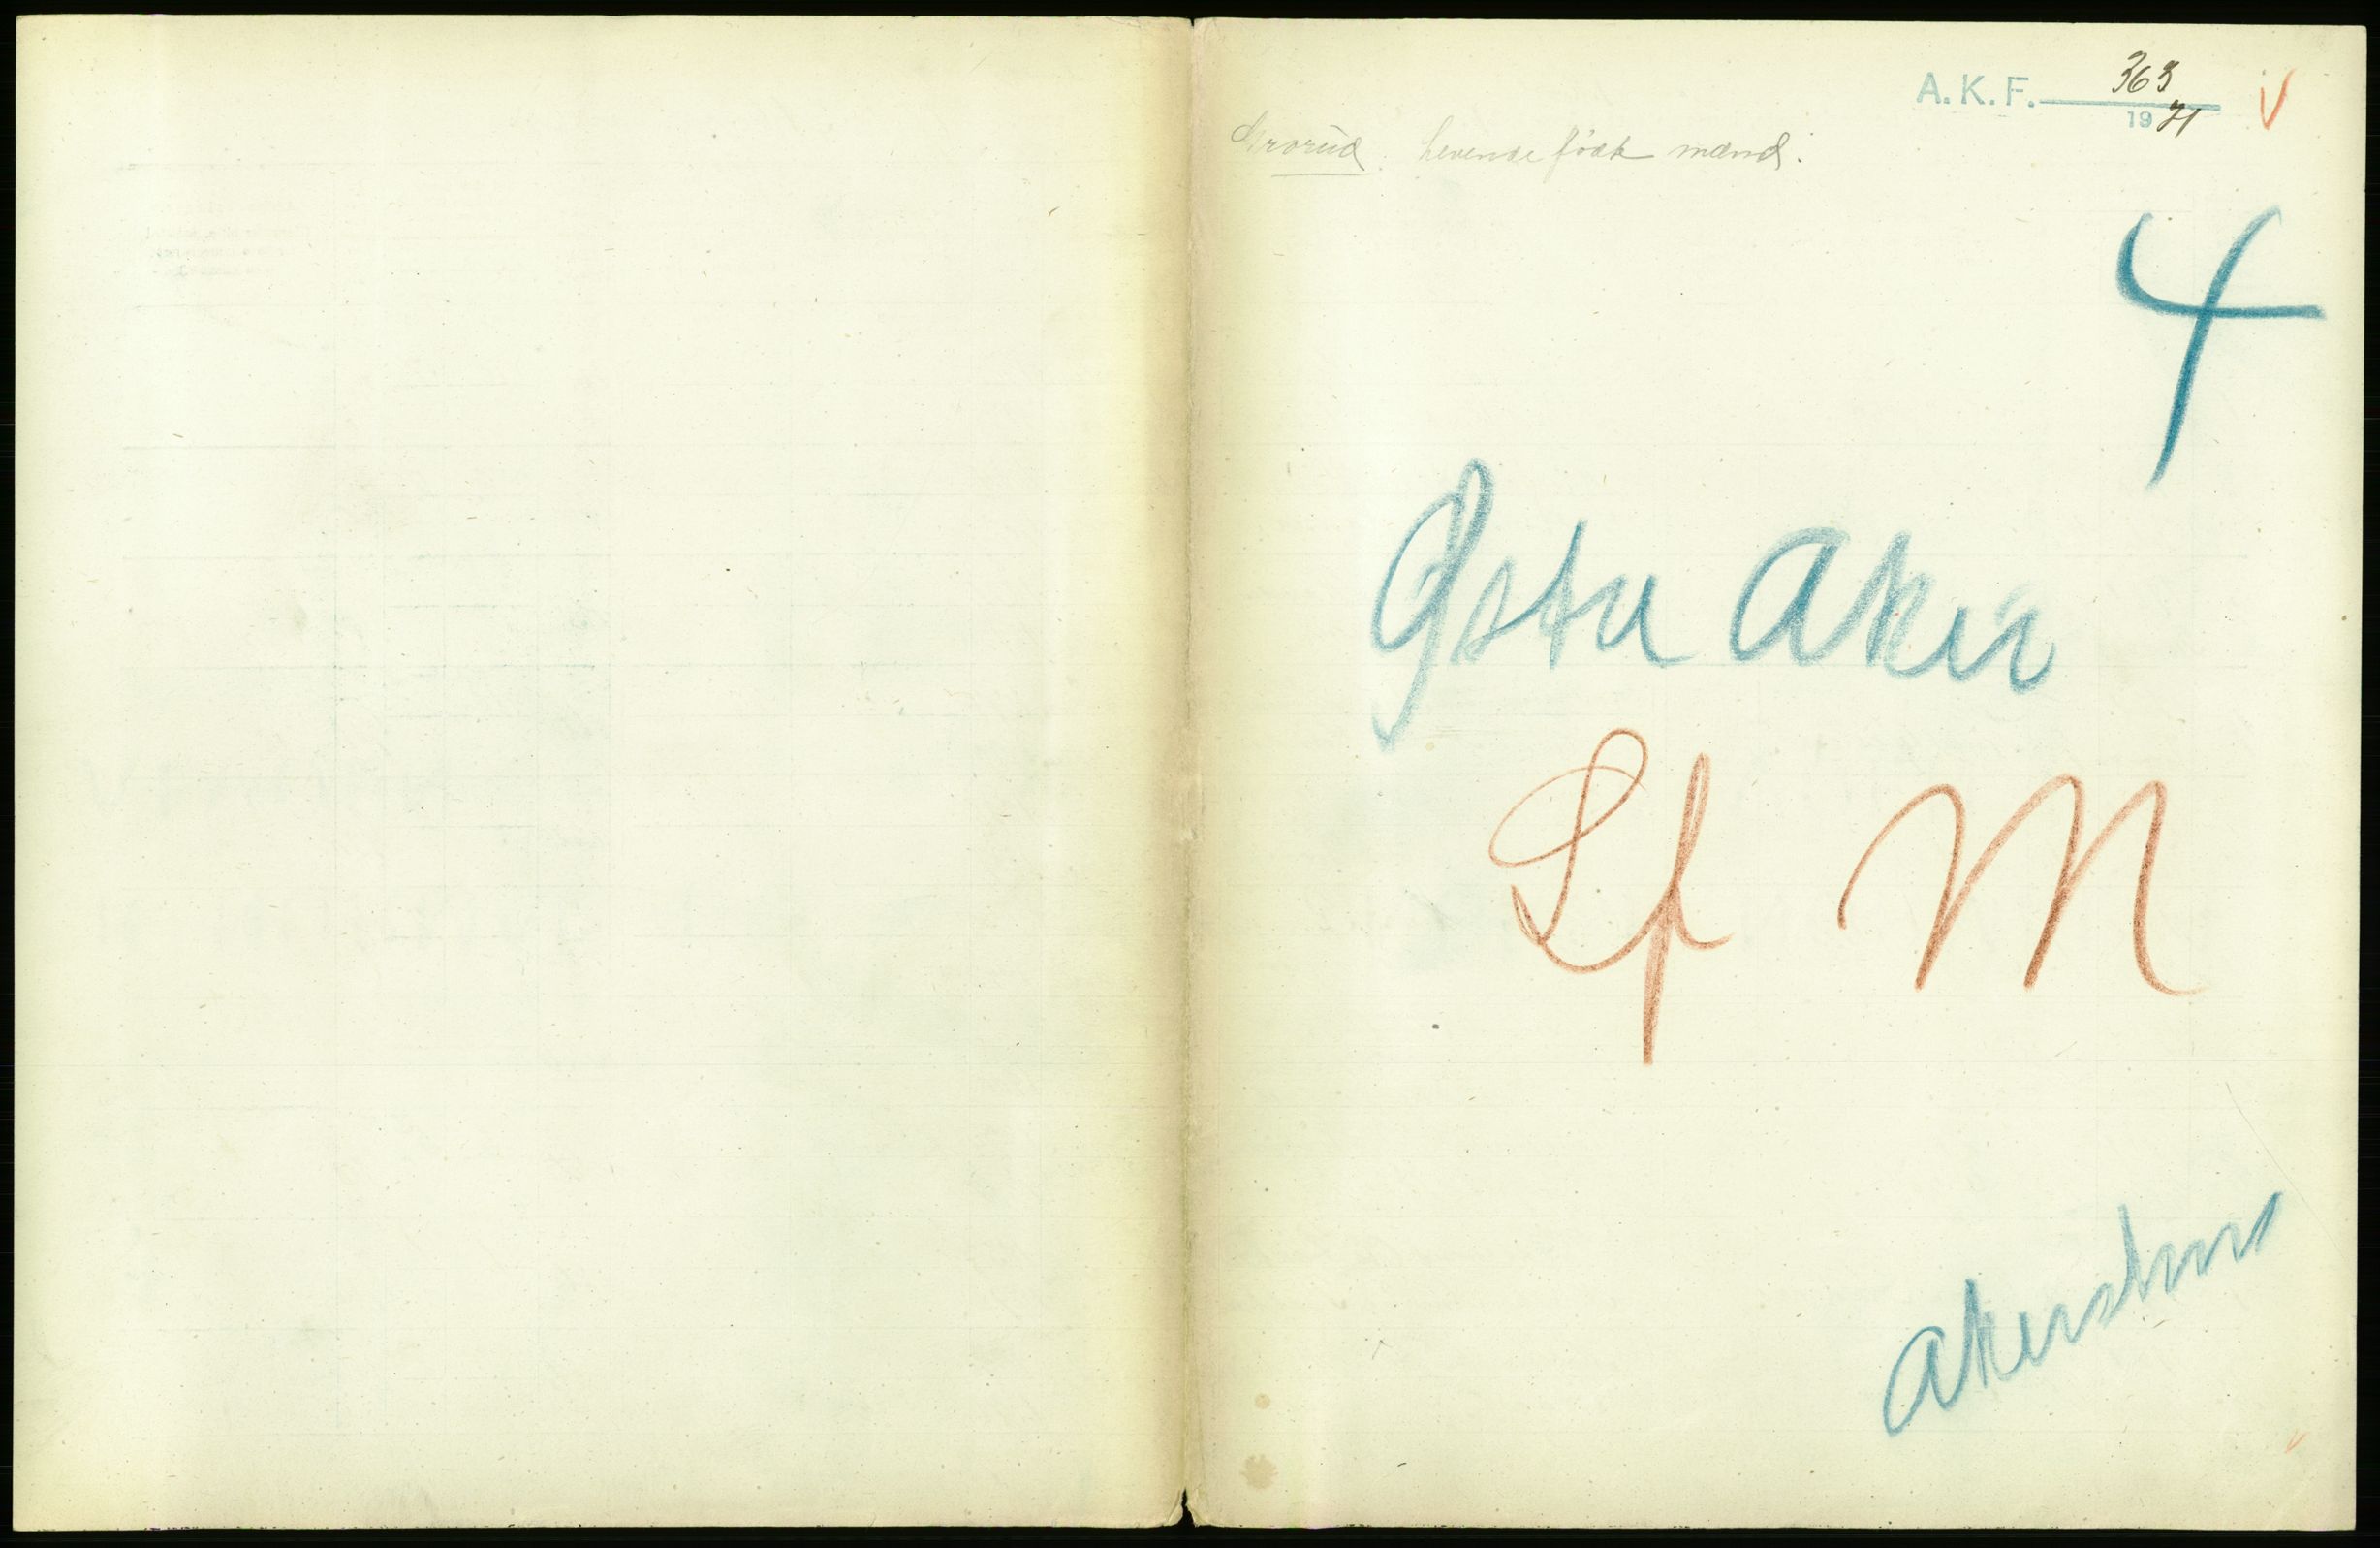 A. K. F. 363
1921 V
Grorud. Levende födte mænd.
4
Østre Aker
Lf M
Akershus